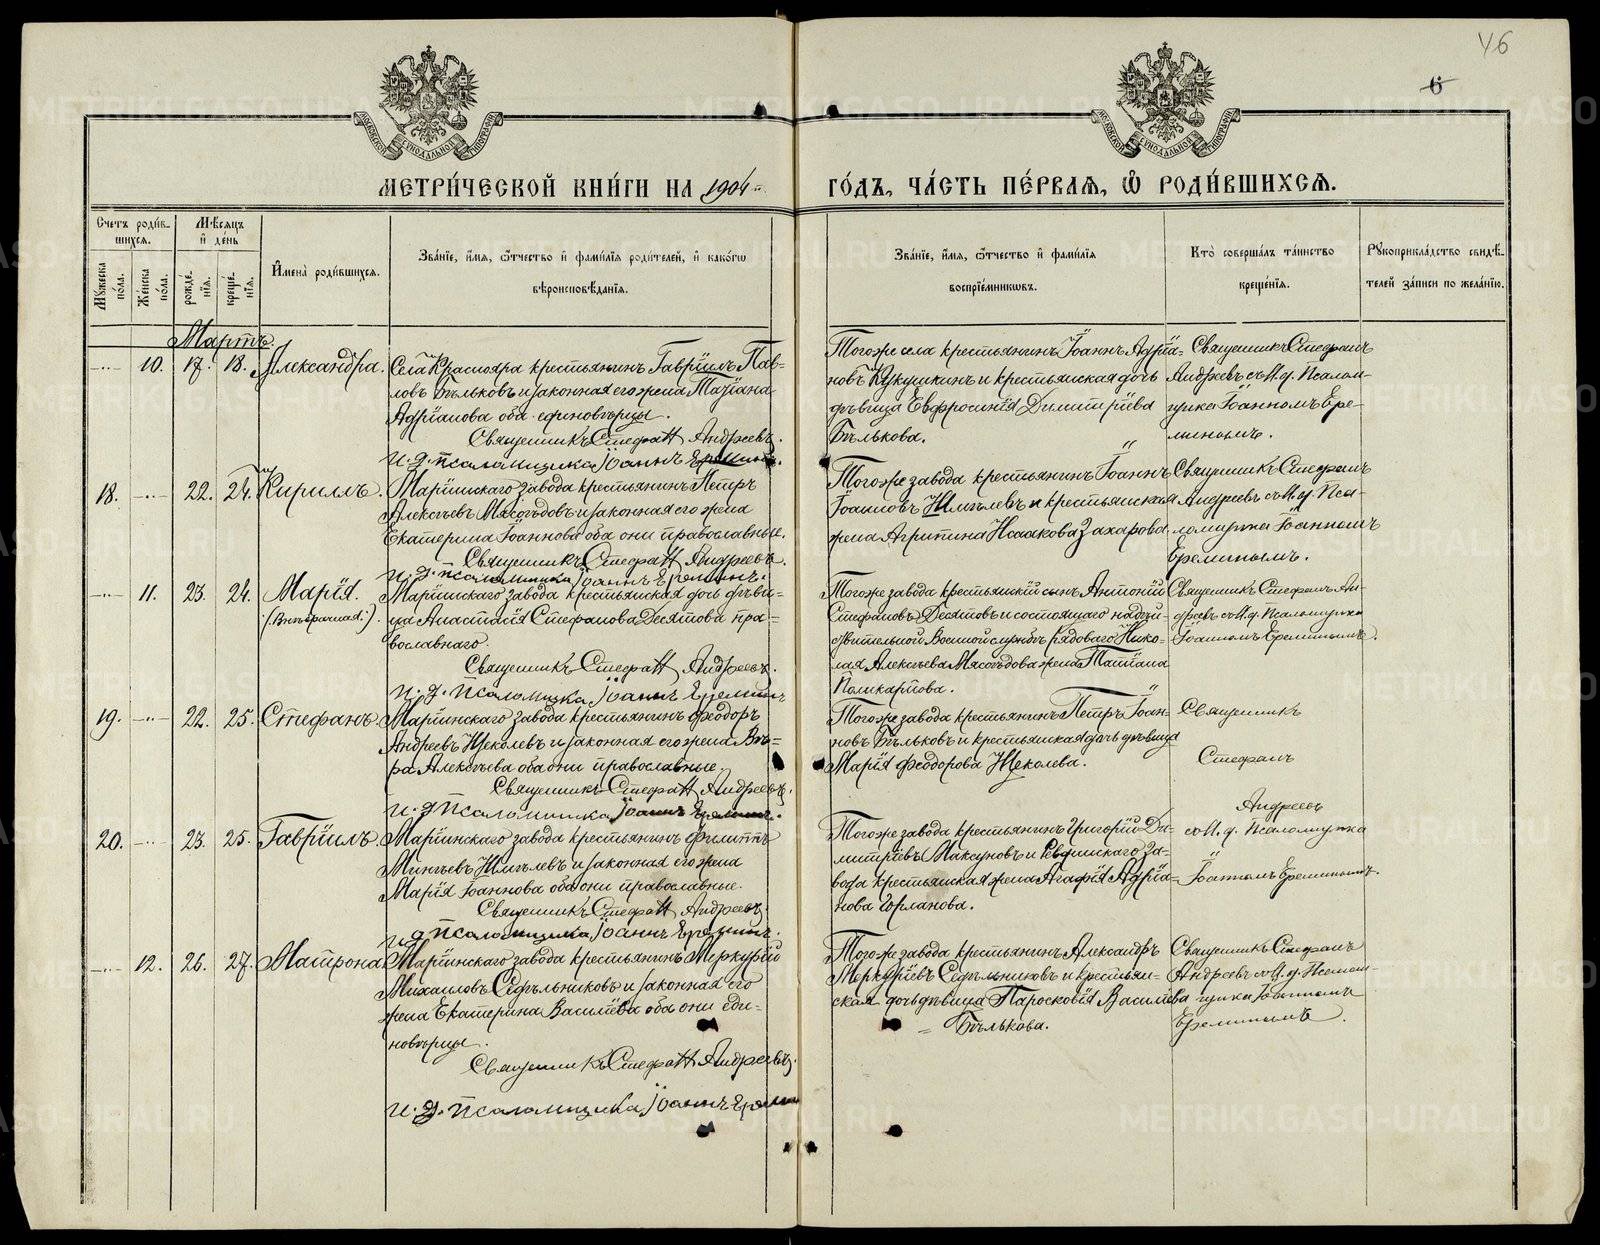 46
6
МОСКОВСКОЙ СѴНОДАЛЬНОЙ ТИПОГРАФІИ
МОСКОВСКОЙ СѴНОДАЛЬНОЙ ТИПОГРАФІИ
МЕТРИ́ЧЕСКОЙ КНИ́ГИ НА 1904
ГО́ДЪ, ЧА́СТЬ ПЕ́РВАѦ, Ѡ҆ РОДИ́ВШИХСѦ.
Счетъ роди́в-
шихсѧ.
Мѣ́сѧцъ
и҆ де́нь
Мꙋ́жеска
по́ла.
Же́нска
по́ла.
рожде́-
нїѧ.
креще́-
нїѧ.
И҆мена̀ роди́вшихсѧ.
Зва́нїе, и҆́мѧ, ѻ҆́тчество и҆ фами́лїѧ роди́телей, и҆ како́гѡ
вѣроисповѣ́данїѧ.
Зва́нїе, и҆́мѧ, ѻ҆́тчество и҆ фами́лїѧ
воспрїе́мникѡвъ.
Кто̀ соверша́лъ та́инство
креще́нїѧ.
Рꙋкоприкла́дство свидѣ́-
телей за́писи по жела́нїю.
Мартъ.
10. 17. 18. Александра.
Села Краснояра крестьянинъ Гавріилъ Пав-
ловъ Бѣльковъ и законная его жена Татіана
Адріанова оба единовѣрцы.
Священникъ Стефанъ Андреевъ.
И. д. псаломщика Іоаннъ Ереминъ.
Тогоже села крестьянинъ Іоаннъ Адріа-
новъ Кукушкинъ и крестьянская дочь
дѣвица Евфросинія Димитріева
Бѣлькова.
Священникъ Стефанъ
Андреевъ съ И. д. Псалом-
щика Іоанномъ Ере-
минымъ.
18. 22. 24. Кириллъ.
Маріинскаго завода крестьянинъ Петръ
Алексѣевъ Мясоѣдовъ и законная его жена
Екатерина Іоаннова оба они православные.
Священникъ Стефанъ Андреевъ.
И. д. псаломщика Іоаннъ Ереминъ.
Тогоже завода крестьянинъ Іоаннъ
Іоанновъ Шмелевъ и крестьянская
жена Агрипина Исаакова Захарова.
Священникъ Стефанъ
Андреевъ съ И. д. Пса-
ломщика Іоанномъ
Ереминымъ.
11. 23. 24. Марія.
(Внѣбрачная.)
Маріинскаго завода крестьянская дочь дѣви-
ца Анастасія Стефанова Десятова пра-
вославнаго.
Священникъ Стефанъ Андреевъ.
И. д. псаломщика Іоаннъ Ереминъ
Тогоже завода крестьянскій сынъ Антоній
Стефановъ Десятовъ и состоящаго на дѣй-
ствительной Военной службѣ рядоваго Нико-
лая Алексѣева Мясоѣдова жена Татіана
Поликарпова.
Священникъ Стефанъ Ан-
дреевъ съ И. д. Псаломщика
Іоанномъ Ереминымъ.
19. 22. 25. Стефанъ.
Маріинскаго завода крестьянинъ Феодоръ
Андреевъ Щеколевъ и законная его жена Вѣ-
ра Алексѣева оба они православные.
Священникъ Стефанъ Андреевъ.
И. д. псаломщика Іоаннъ Ереминъ.
Тогоже завода крестьянинъ Петръ Іоан-
новъ Бѣльковъ и крестьянская дочь дѣвица
Марія Феодорова Щеколева.
Священникъ
Стефанъ
Андреевъ
20. 23. 25. Гавріилъ.
Маріинскаго завода крестьянинъ Филиппъ
Минѣевъ Шмелевъ и законная его жена
Марія Іоаннова оба они православные.
Священникъ Стефанъ Андреевъ.
И. д. псаломщика Іоаннъ Ереминъ.
Тогоже завода крестьянинъ Григорій Ди-
митріевъ Максуновъ и Ревдинскаго За-
вода крестьянская жена Агафія Адріа-
нова Юрланова.
съ И. д. Псаломщика
Іоанномъ Ереминымъ.
12. 26. 27. Матрона.
Маріинскаго завода крестьянинъ Меркурій
Михаиловъ Седѣльниковъ и законная его
жена Екатерина Василіева оба они еди-
новѣрцы.
Священникъ Стефанъ Андреевъ.
И. д. псаломщика Іоаннъ Ереминъ
Тогоже завода крестьянинъ Александръ
Меркуріевъ Седѣльниковъ и крестьян-
ская дочь дѣвица Паросковія Василіева
Бѣлькова.
Священникъ Стефанъ
Андреевъ съ И. д. Псалом-
щика Іоанномъ
Ереминымъ.
METRIKI.GASO-URAL.RU